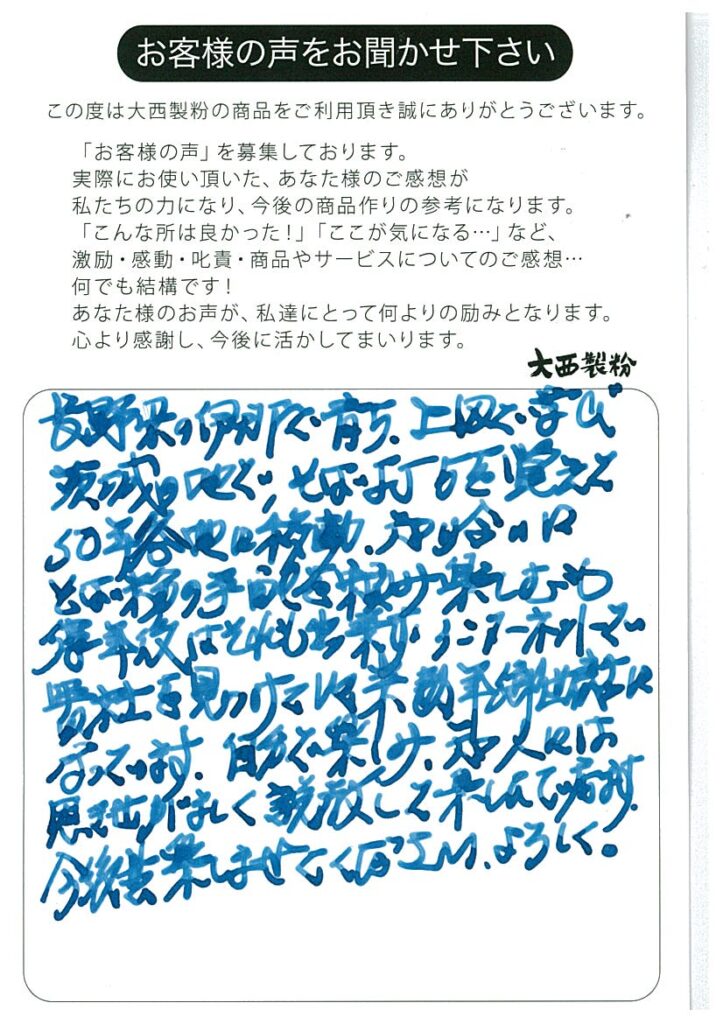 お客様の声をお聞かせ下さい
この度は大西製粉の商品をご利用頂き誠にありがとうございます。
「お客様の声」を募集しております。
実際にお使い頂いた、あなた様のご感想が
私たちの力になり、今後の商品作りの参考になります。
「こんな所は良かった!」「ここが気になる…」など、
激励・感動・叱責・商品やサービスについてのご感想…
何でも結構です!
あなた様のお声が、私達にとって何よりの励みとなります。
心より感謝し、今後に活かしてまいります。
大西製粉
長野県の伊那で育ち、上田で学び
茨城の地で、そば打ちを覚えて
50年各地に移動、知り合いに
そば粉の手配を頼み楽しむも
定年後はそれも出来ず、インターネットで
貴社を見つけて以来数年御世話に
なっています。自分で楽しみ、知人には
押し売りがましく して楽しんで居ます。
今後共楽しませてください、よろしく。